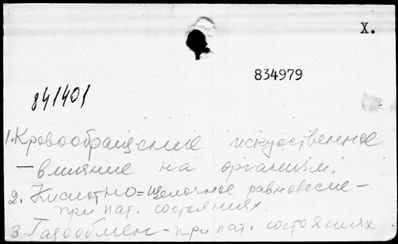 X.
834979
841401
1. Кровообращение искусственное
- влияние на организм.
2. Кислотно=щелочное равновесие -
при пат. состояниях.
3. Газообмен - при пат. состояниях